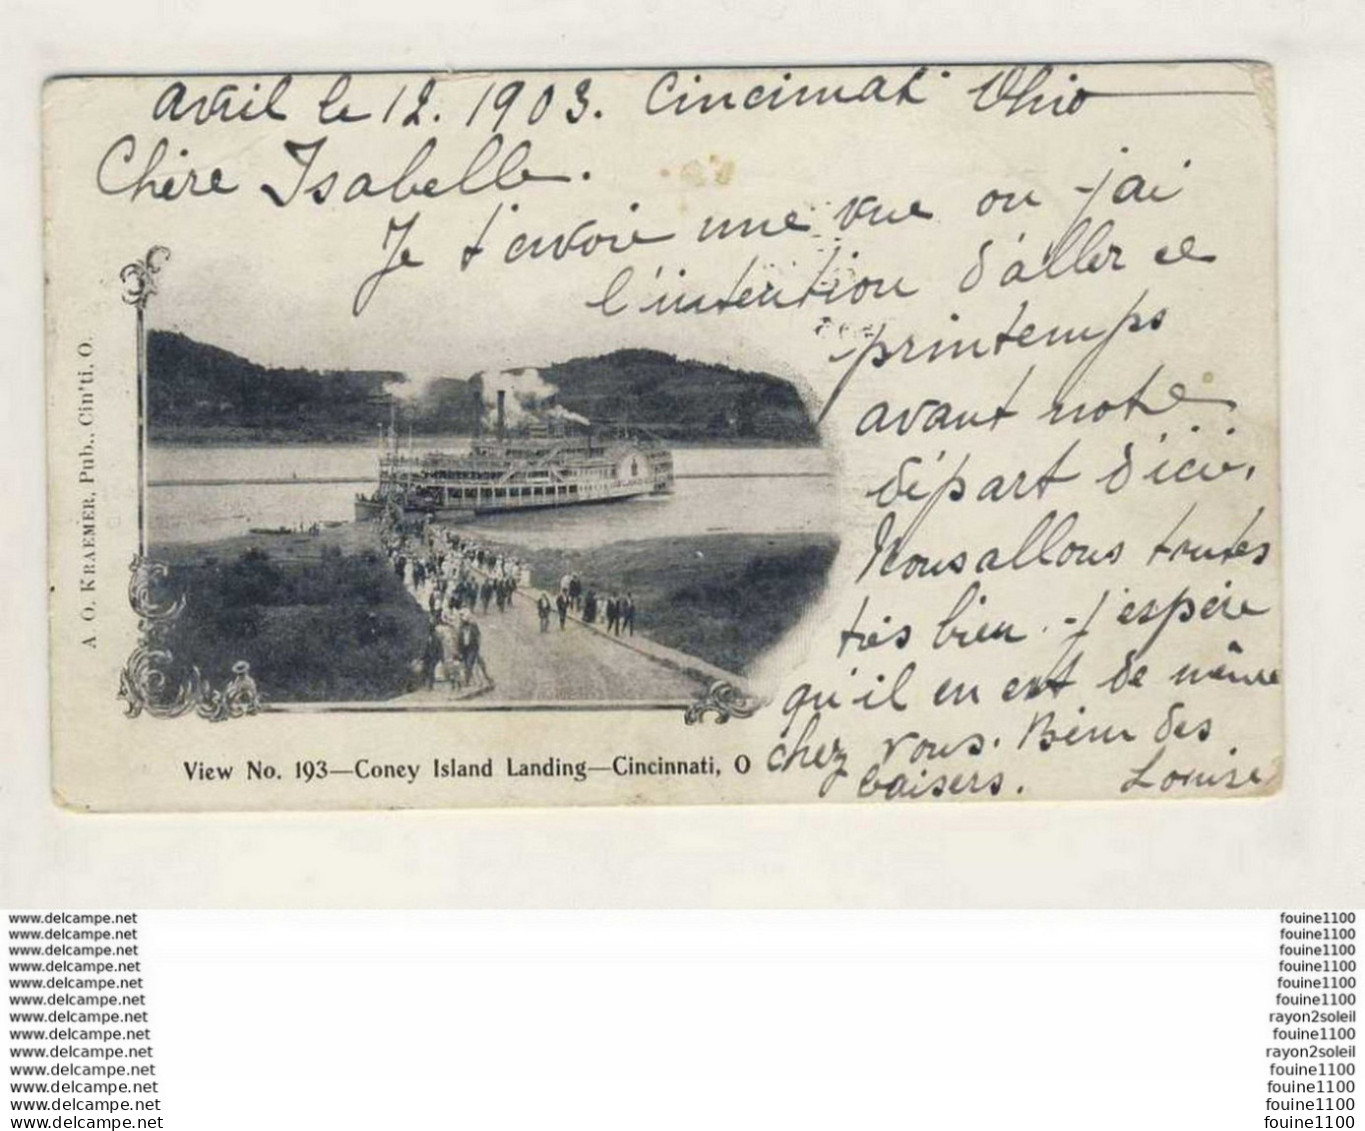 avril le 12. 1903. Cincinnati Ohio
Chère Isabelle.
Je t'envoie une vue ou j'ai
l'intention d'aller ce
printemps
avant notre
départ d'ici.
Nous allons toutes
très bien. J'espère
qu'il en est de même
chez vous. Bien des
baisers. Louise
A. O. KRAEMER, Pub., Cin'ti, O.
View No. 193—Coney Island Landing—Cincinnati, O
www.delcampe.net fouine1100
www.delcampe.net fouine1100
www.delcampe.net fouine1100
www.delcampe.net fouine1100
www.delcampe.net fouine1100
www.delcampe.net fouine1100
www.delcampe.net rayon2soleil
www.delcampe.net fouine1100
www.delcampe.net rayon2soleil
www.delcampe.net fouine1100
www.delcampe.net fouine1100
www.delcampe.net fouine1100
www.delcampe.net fouine1100